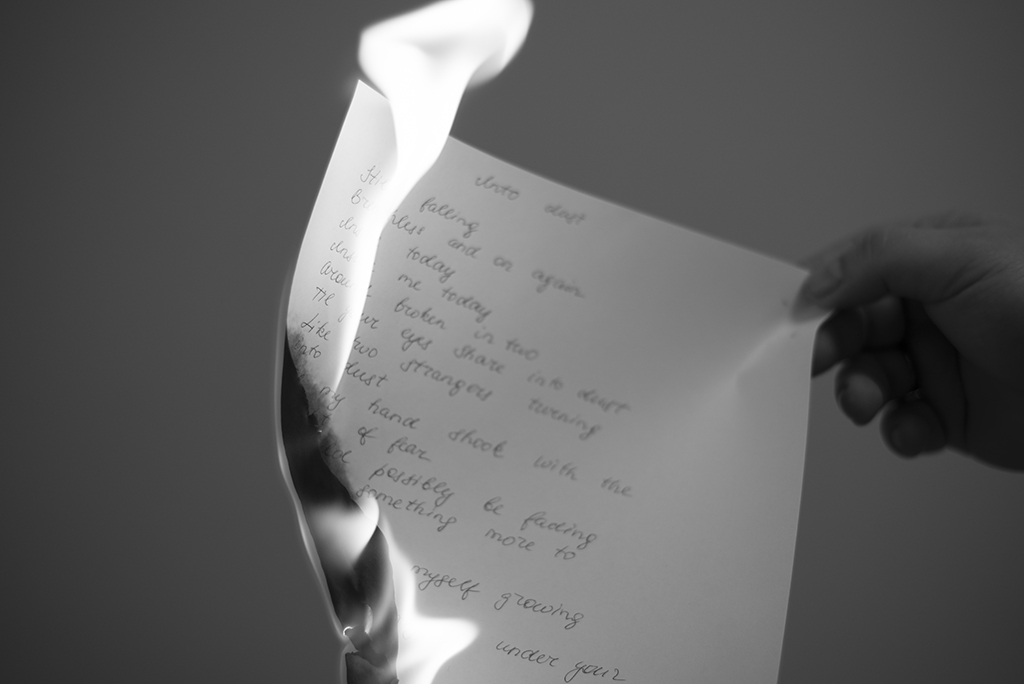 Into dust
falling
and on again
today
me today
broken in two
eyes share into dust
Like two strangers turning
into dust
my hand shook with the
of fear
possibly be fading
something more to
myself growing
under your